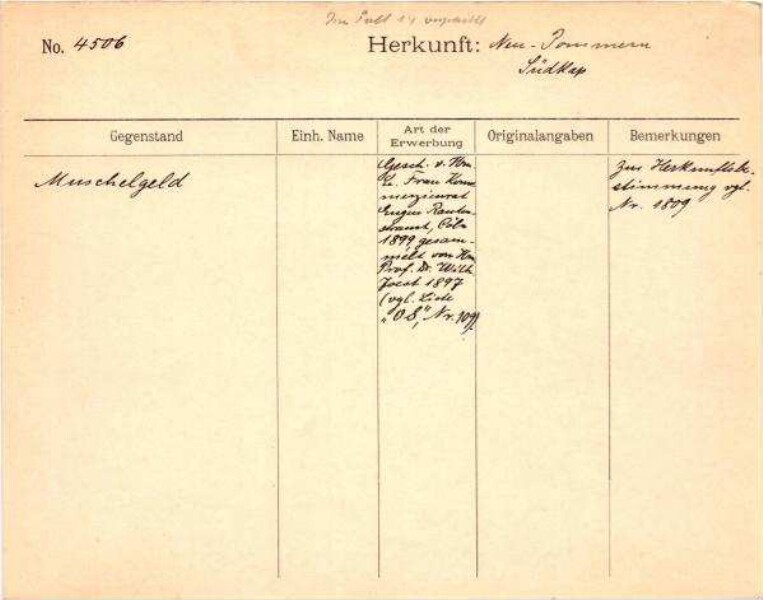 Im Pult 14 verpackt
No. 4506
Herkunft: Neu-Pommern
Südkap
Gegenstand
Einh. Name
Art der
Erwerbung
Originalangaben
Bemerkungen
Muschelgeld
Gesch. v. Hrn
u. Frau Kom-
merzienrat
Eugen Rauten-
strauch, Cöln
1899, gesam-
melt von Hrn
Prof. Dr. Wilh.
Joest 1897
(vgl. Liste
„OS", Nr. 109)
Zur Herkunftsbe-
stimmung vgl.
Nr. 1809